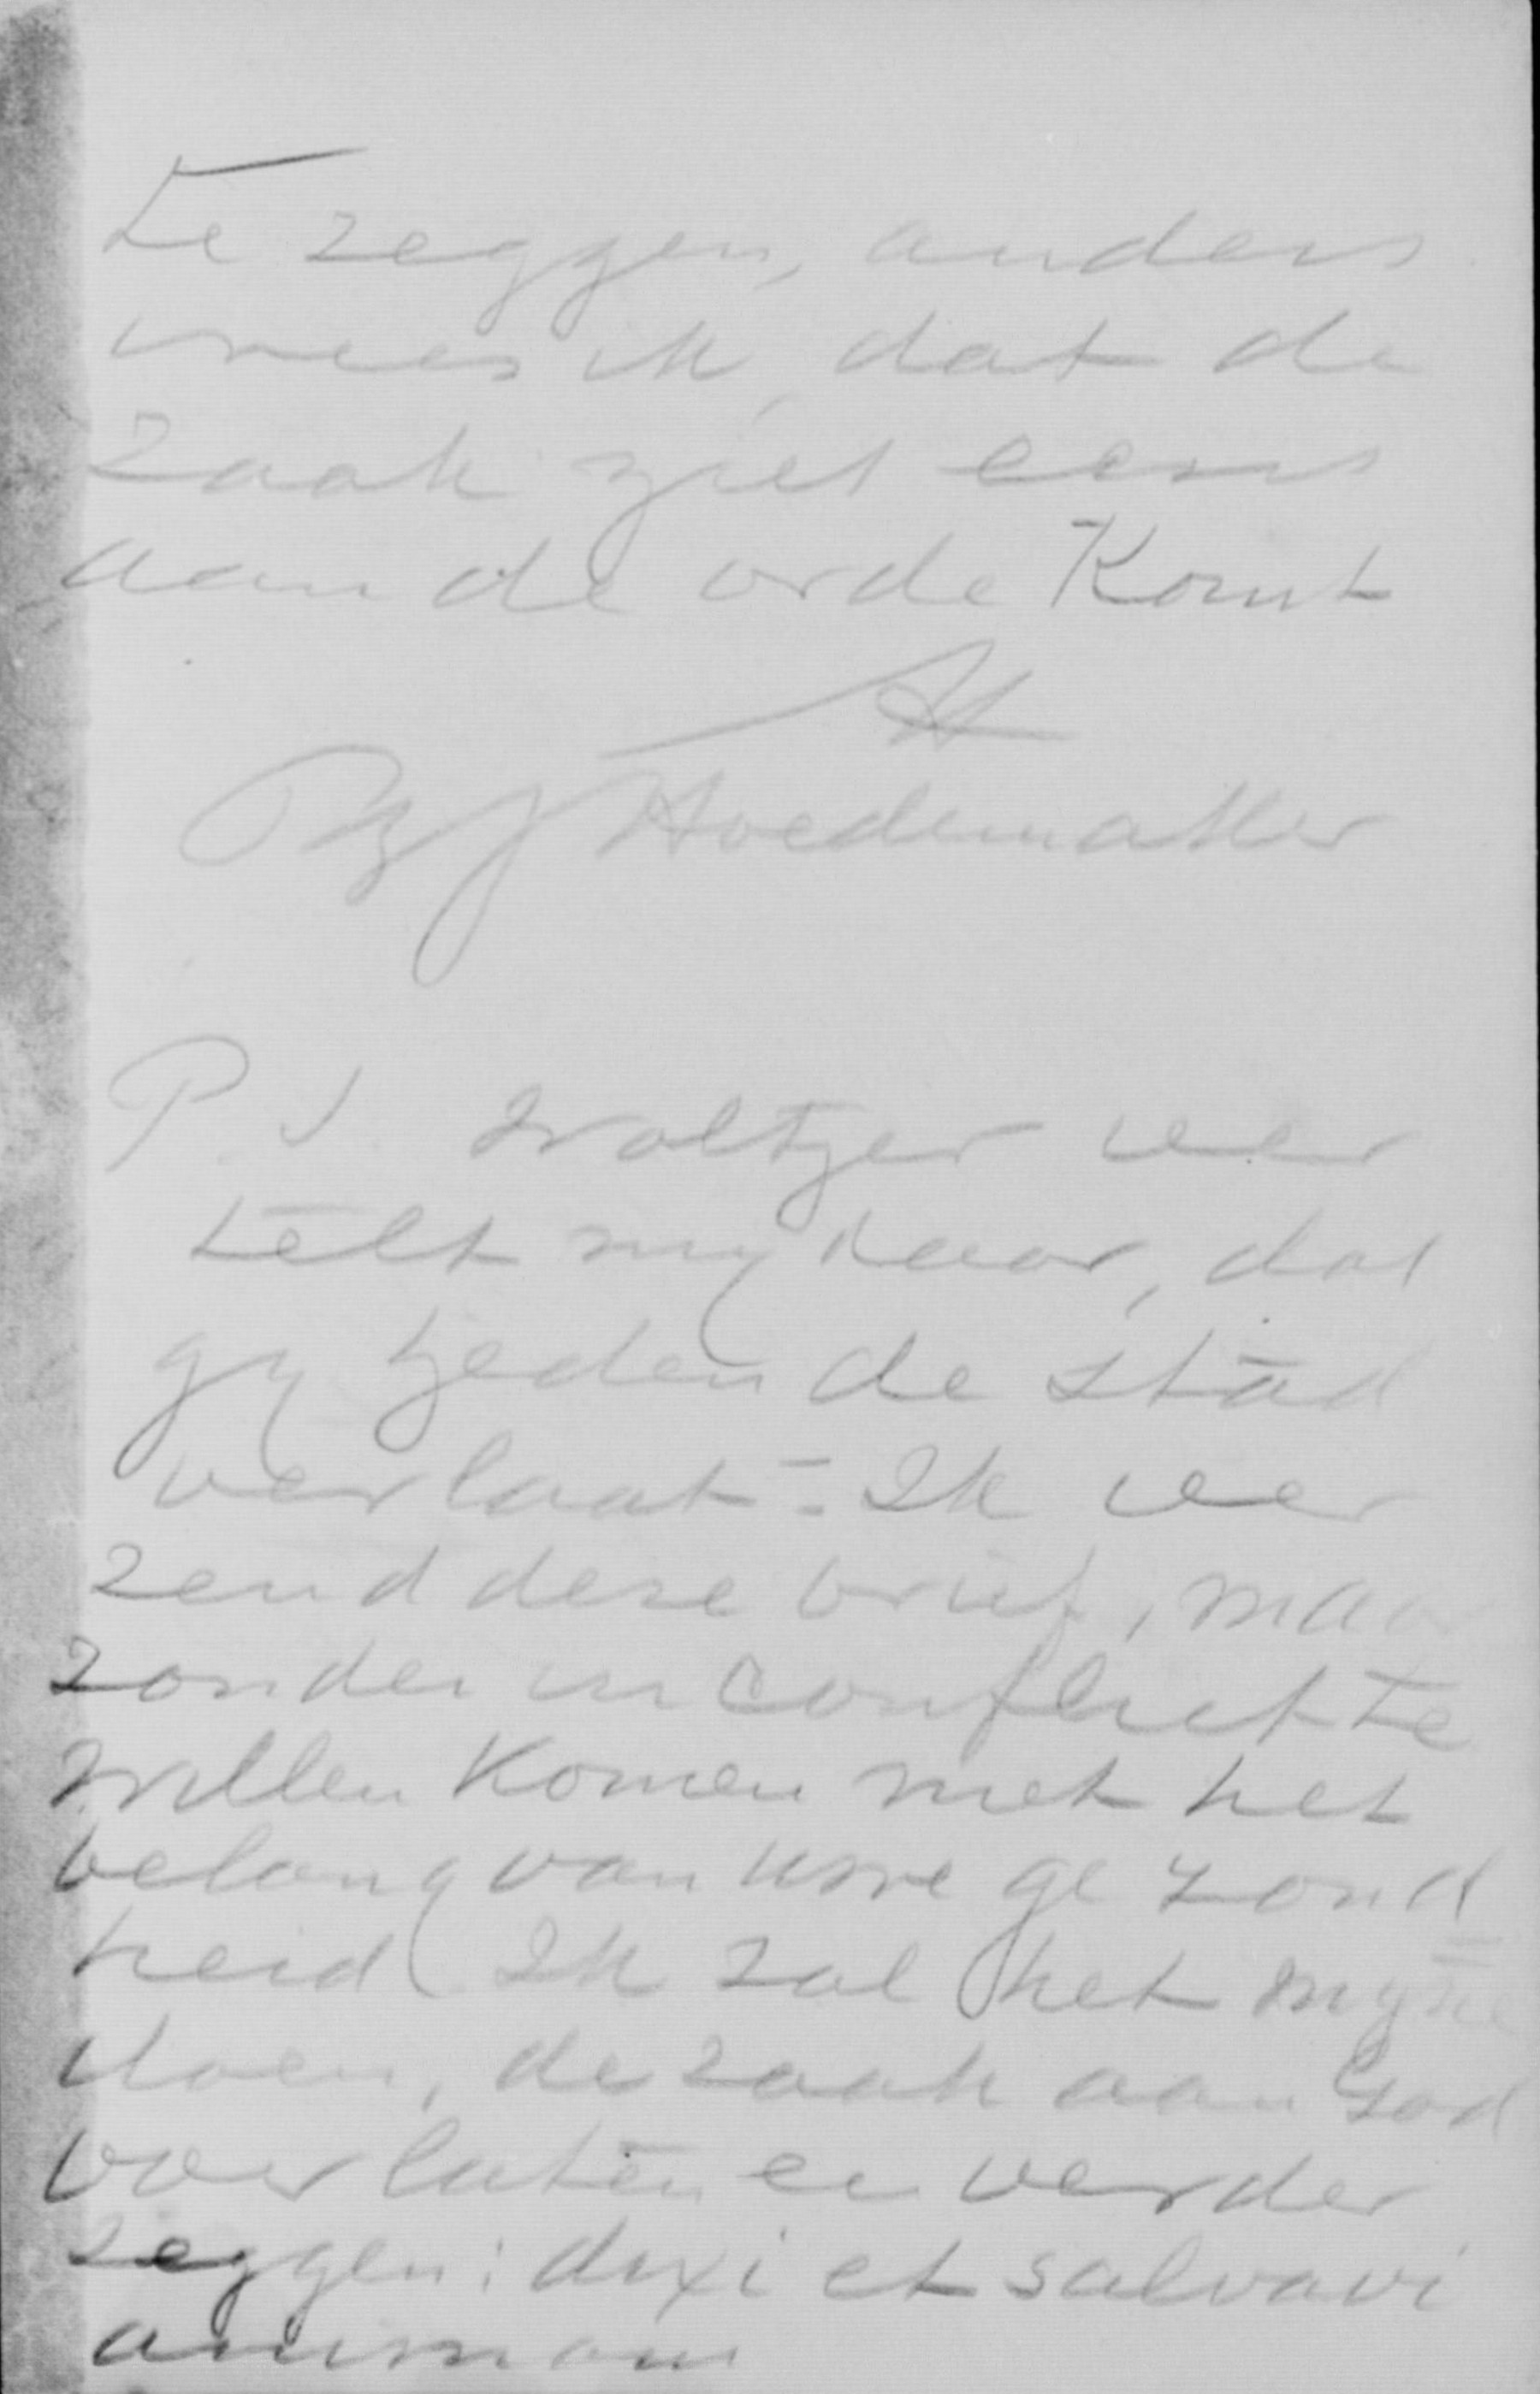 te zeggen, anders
vrees ik, dat de
zaak niet eens
aan de orde Komt
Hoedemaker
P.S. Woltjer ver
telt mij daar, dat
gij heden de stad
verlaat - Ik ver
zend deze brief, maar
zonder in conflikt te
willen Komen met het
belang van uwe gezond
heid Ik zal het mijne
doen, de zaak aan God
overlaten en verder
zeggen: dixi et salvavi
animam